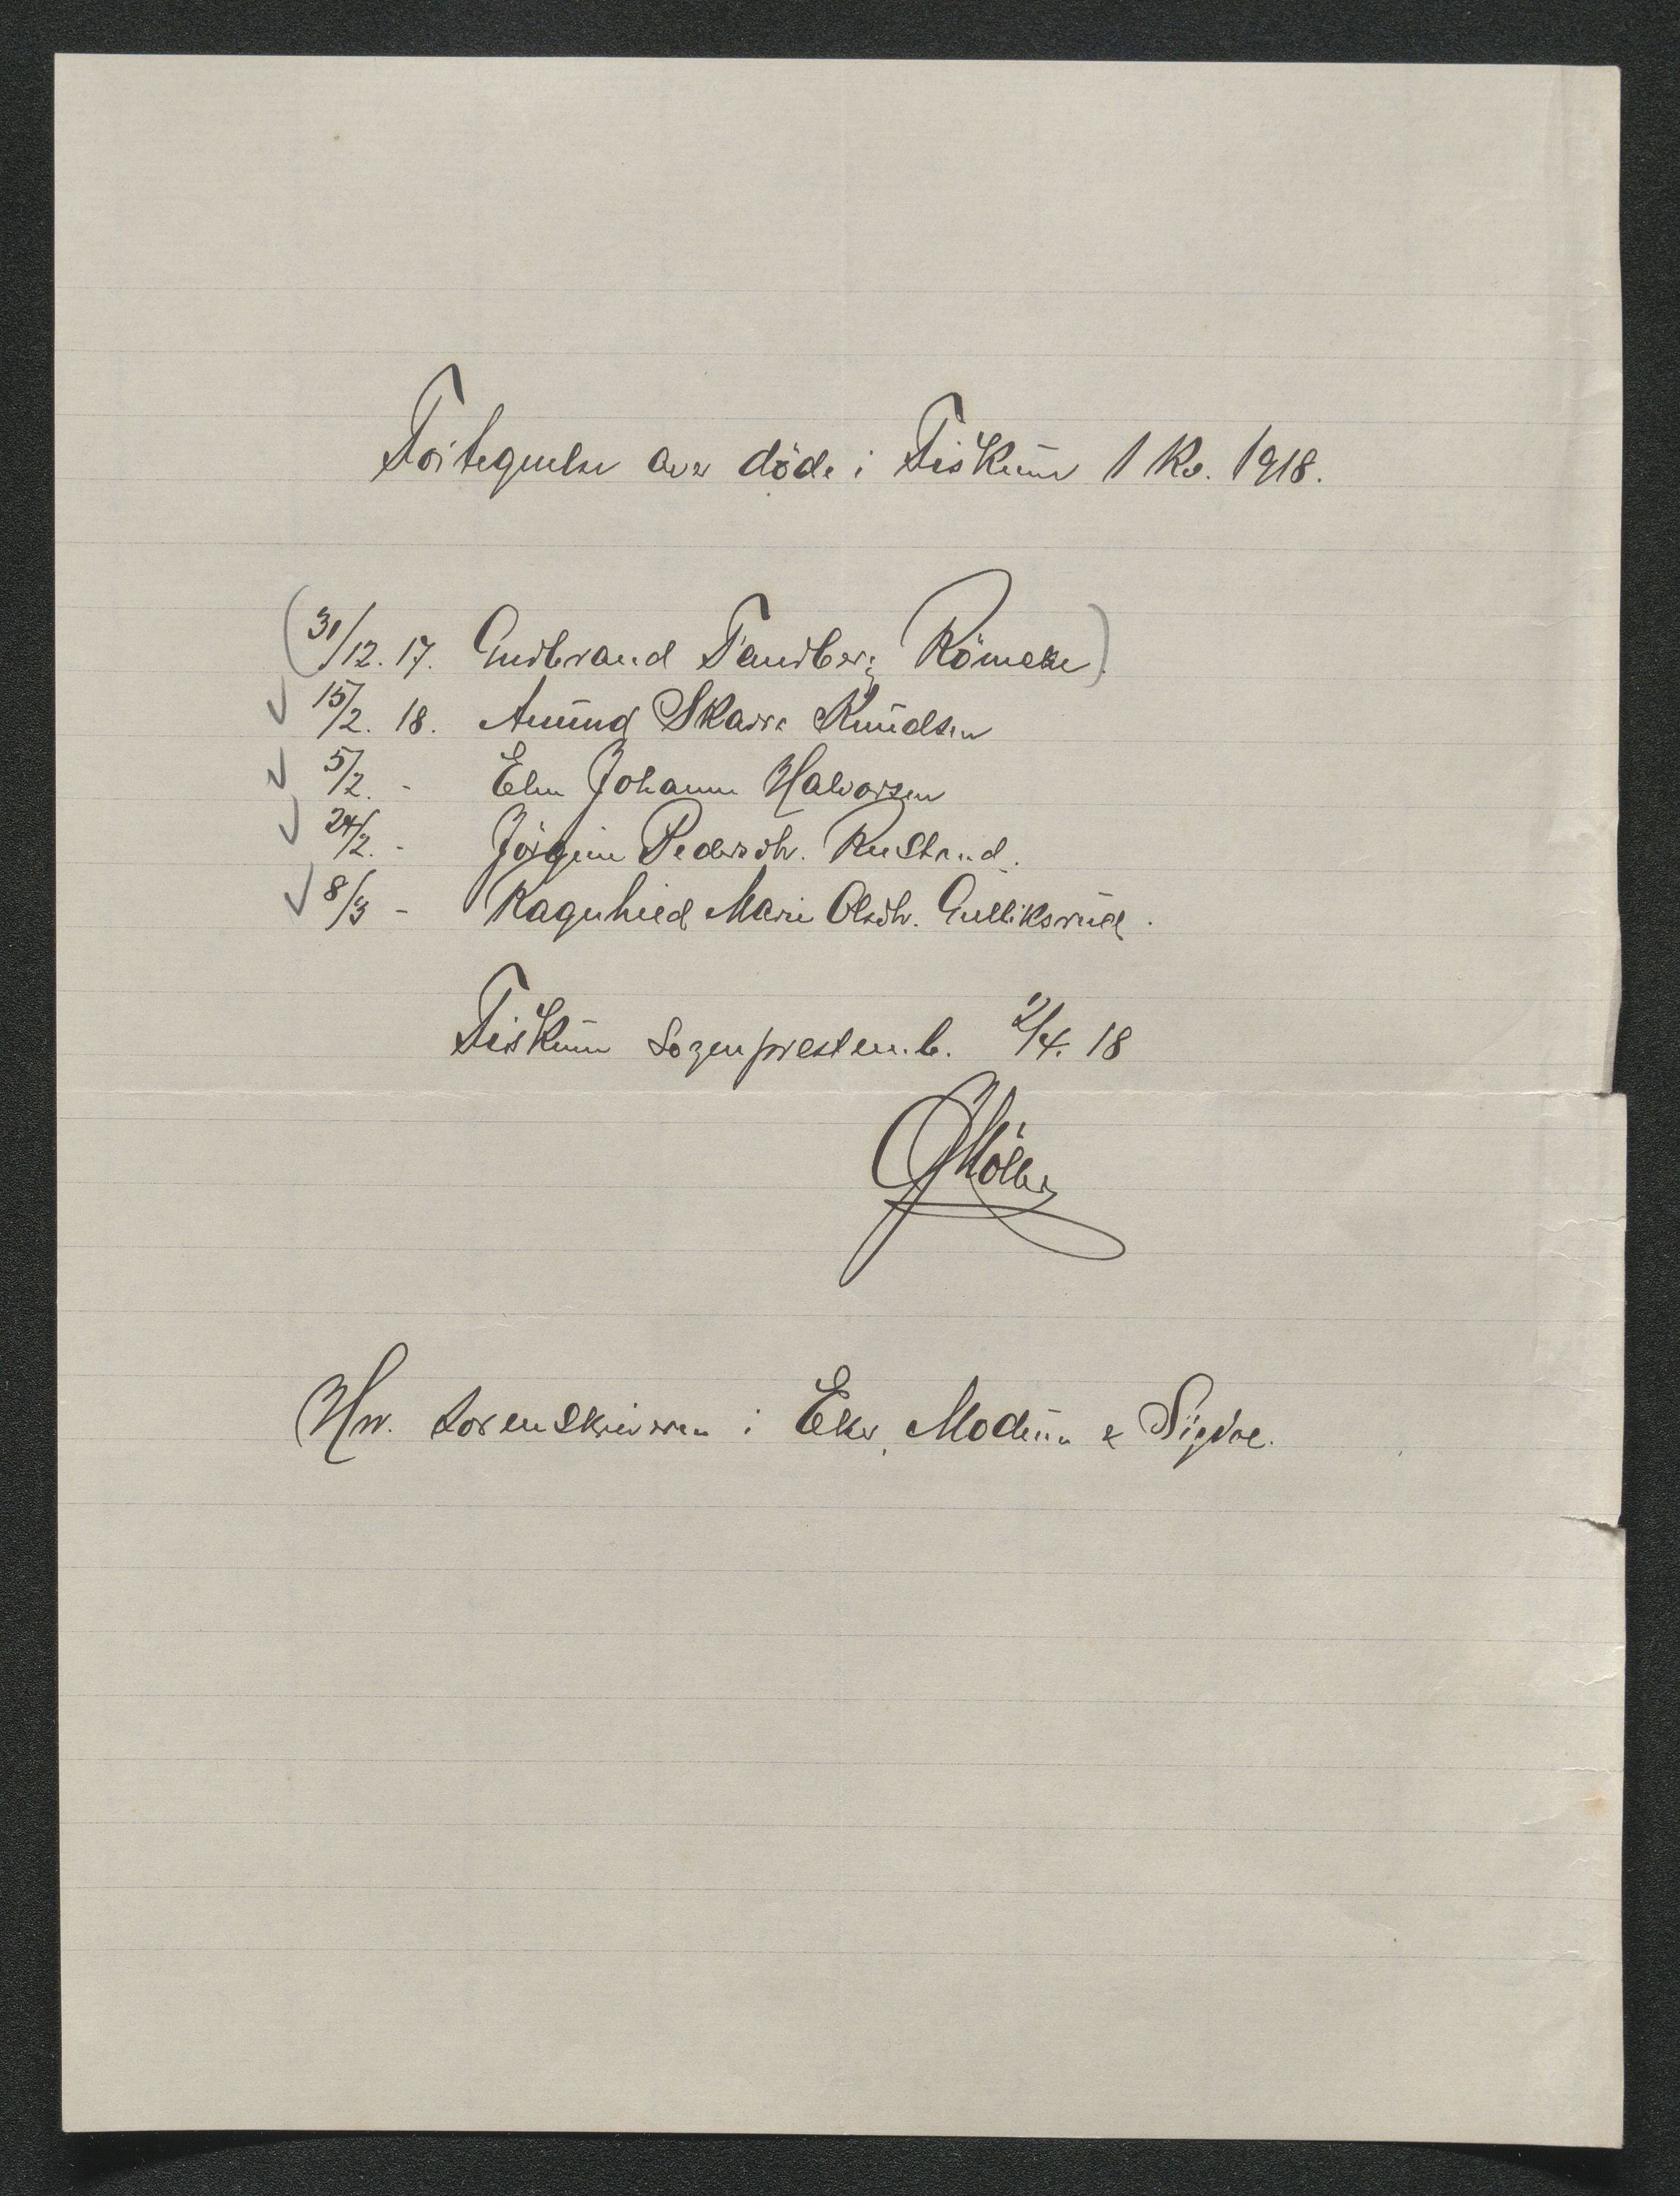 Fortegnelse over döde i Fiskum 1 Kv. 1918.
(31/12. 17. Gudbrand Fauiberg Römeke)
15/2. 18. Amund Skarra Knudsen
5/2. - Elen Johanne Halvorsen
24/2. - Jörgine Pedersdtr. Rustand.
8/3 - Ragnhild Marie Olsdtr. Gulliksrud.
Fiskum Sogneprestemb. 2/4. 18
Möller
Hr. Sorenskriveren i Eker, Modum & Sigdal.